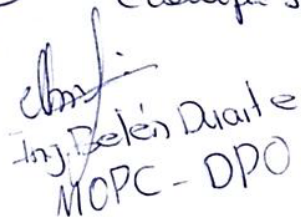 Ing. Belén Duarte
MOPC - DPO